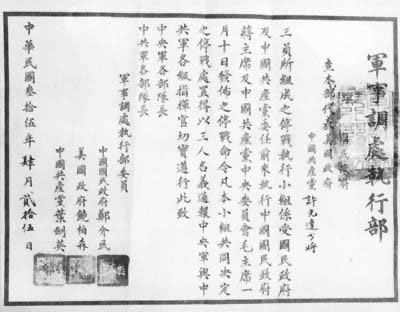 軍事調處執行部
民政府
查本部代表美國政府
中國共產黨 許光達少將
三員所組成之停戰執行小組係受國民政府
及中國共產黨委任前來執行中國國民政府
蔣主席及中國共產黨中央委員會毛主席一
月十日發佈之停戰命令凡本小組共同決定
之停戰處置得以三人名義通報中央軍與中
共軍各級指揮官切實遵行此致
中央軍各部隊長
中共軍各部隊長
軍事調處執行部委員
中國國民政府鄭介民
美國政府饒柏森
中國共產黨葉劍英
中華民國叁拾伍年肆月貳拾伍日